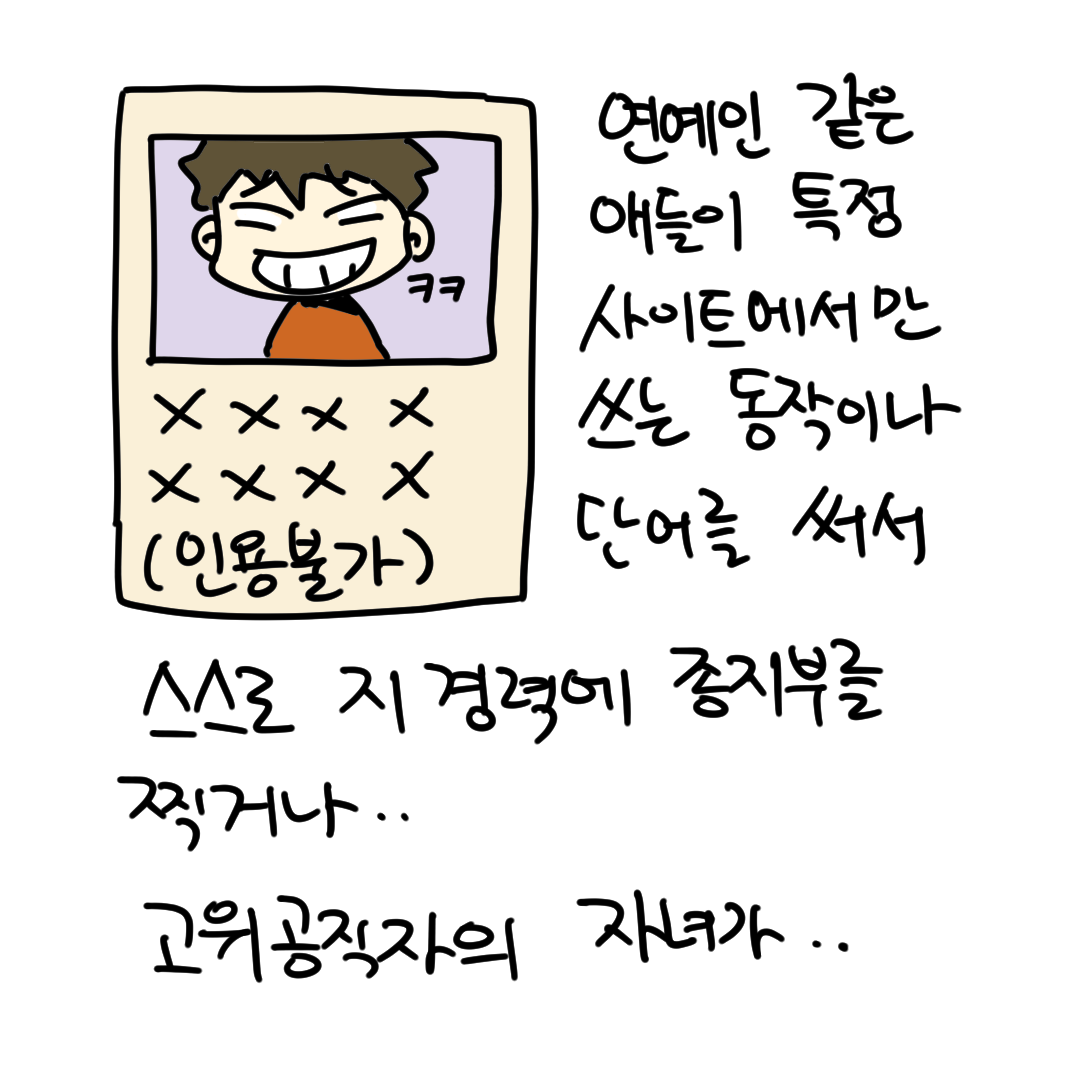 연예인 같은
애들이 특정
사이트에서만
쓰는 동작이나
단어를 써서
ㅋㅋ
XXXX
XXXX
(인용불가)
스스로 지 경력에 종지부를
찍거나..
고위공직자의 자녀가..